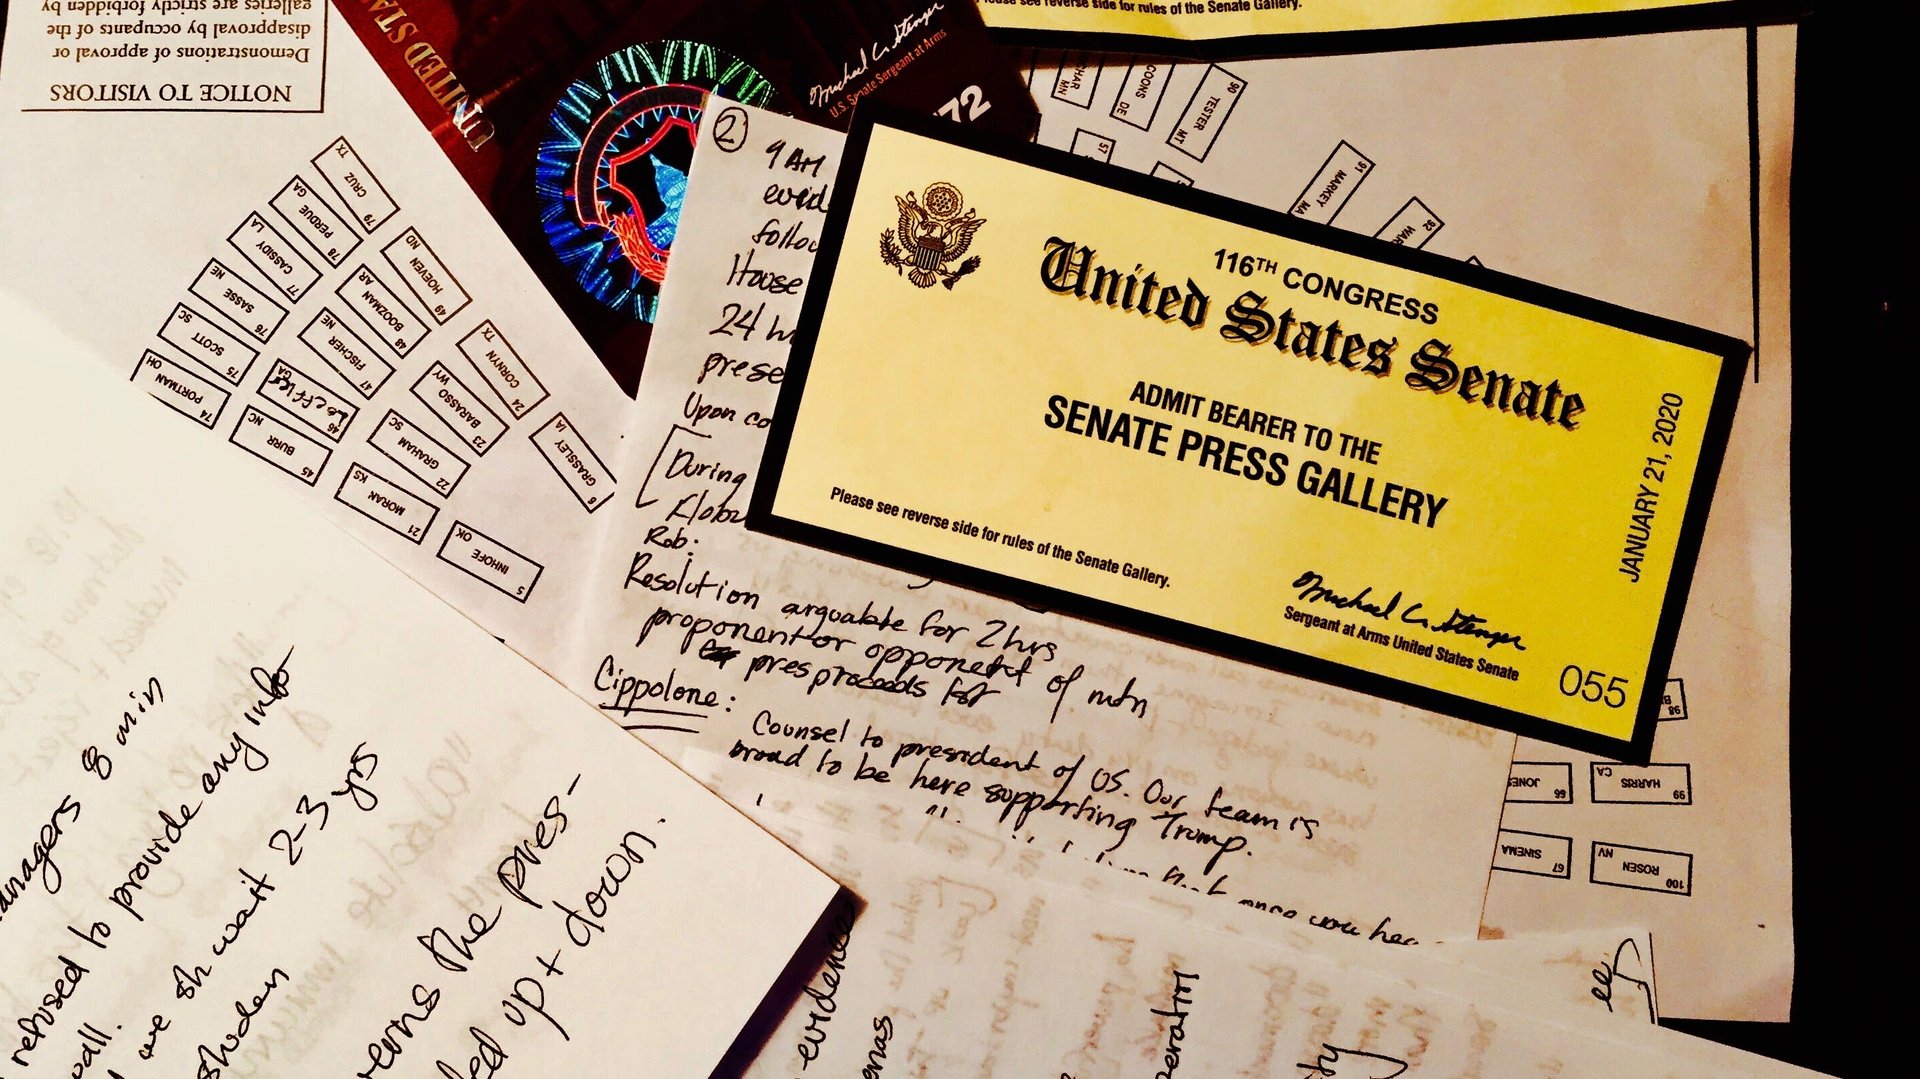 Please see reverse side for rules of the Senate Gallery.
NOTICE TO VISITORS
Demonstrations of approval or
disapproval by occupants of the
galleries are strictly forbidden by
UNITED STA
Michael C. Stenger
U.S. Senate Sergeant at Arms
72
116TH CONGRESS
United States Senate
ADMIT BEARER TO THE
SENATE PRESS GALLERY
Please see reverse side for rules of the Senate Gallery.
JANUARY 21, 2020
Michael C. Stenger
Sergeant at Arms United States Senate
055
CRUZ TX 79
PERDUE GA 78
CASSIDY LA 77
SASSE NE 76
SCOTT SC 75
PORTMAN OH 74
HOEVEN ND 49
BOOZMAN AR 48
FISCHER NE 47
Loeffler GA 46
BURR NC 45
CORNYN TX 24
BARASSO WY 23
GRAHAM SC 22
MORAN KS 21
GRASSLEY IA 6
INHOFE OK 5
MN
COONS DE
TESTER MT 90
57
MARKEY MA 91
WAR 92
98
JONES 66
HARRIS CA 99
SINEMA 67
ROSEN NV 100
2
9 AM
evid
follow
House
24 h
prese
Upon co
During
Floor
Rob:
Resolution arguable for 2 hrs
proponent or opponent of mtn
pres proceeds for
Cippolone:
Counsel to president of US. Our team is
proud to be here supporting Trump.
once you hea
anagers 8 min
refused to provide any info
wall.
we sh wait 2-3 yrs
verns the pres-
up + down.
evidence
enas
peration